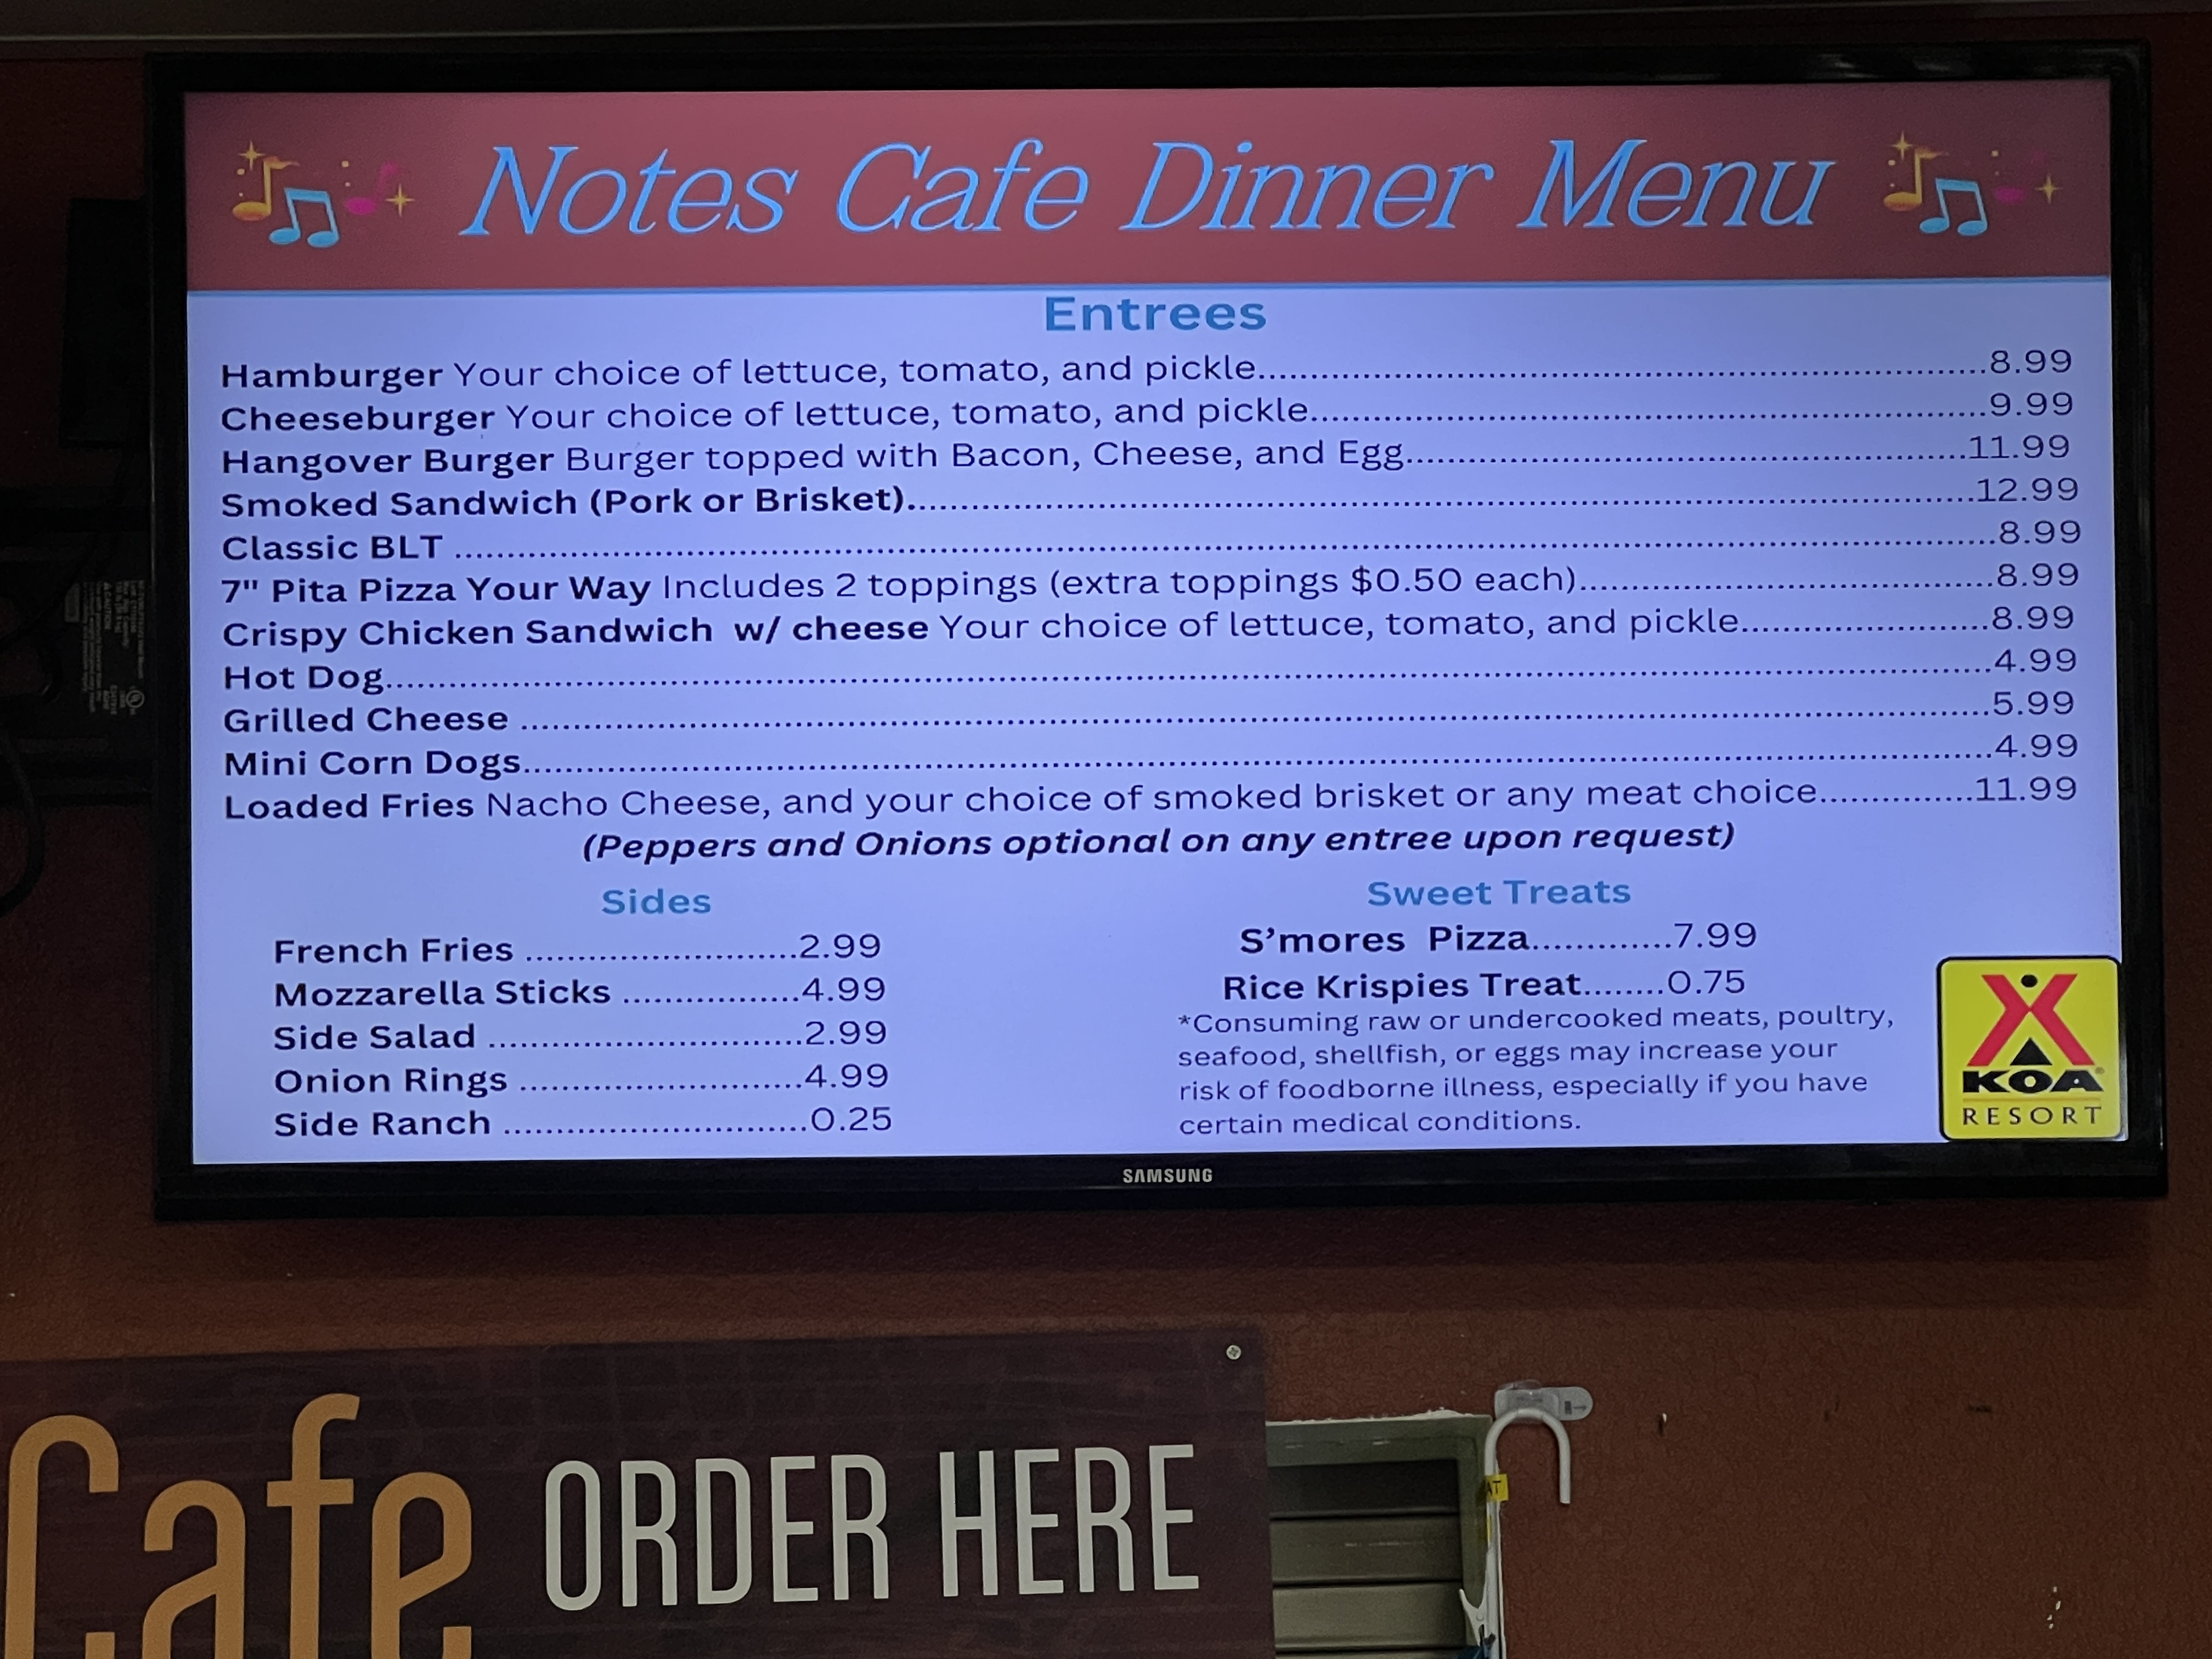 Notes Cafe Dinner Menu
Entrees
Hamburger Your choice of lettuce, tomato, and pickle......................................................................8.99
Cheeseburger Your choice of lettuce, tomato, and pickle.................................................................9.99
Hangover Burger Burger topped with Bacon, Cheese, and Egg......................................................11.99
Smoked Sandwich (Pork or Brisket).....................................................................................................12.99
Classic BLT ...................................................................................................................................................8.99
7" Pita Pizza Your Way Includes 2 toppings (extra toppings $0.50 each).......................................8.99
Crispy Chicken Sandwich w/ cheese Your choice of lettuce, tomato, and pickle.......................8.99
Hot Dog...........................................................................................................................................................4.99
Grilled Cheese ..............................................................................................................................................5.99
Mini Corn Dogs..............................................................................................................................................4.99
Loaded Fries Nacho Cheese, and your choice of smoked brisket or any meat choice...............11.99
(Peppers and Onions optional on any entree upon request)
Sides
French Fries ..........................2.99
Mozzarella Sticks .................4.99
Side Salad ..............................2.99
Onion Rings ...........................4.99
Side Ranch .............................0.25
Sweet Treats
S’mores Pizza.............7.99
Rice Krispies Treat........0.75
*Consuming raw or undercooked meats, poultry,
seafood, shellfish, or eggs may increase your
risk of foodborne illness, especially if you have
certain medical conditions.
KOA®
RESORT
SAMSUNG
Cafe ORDER HERE